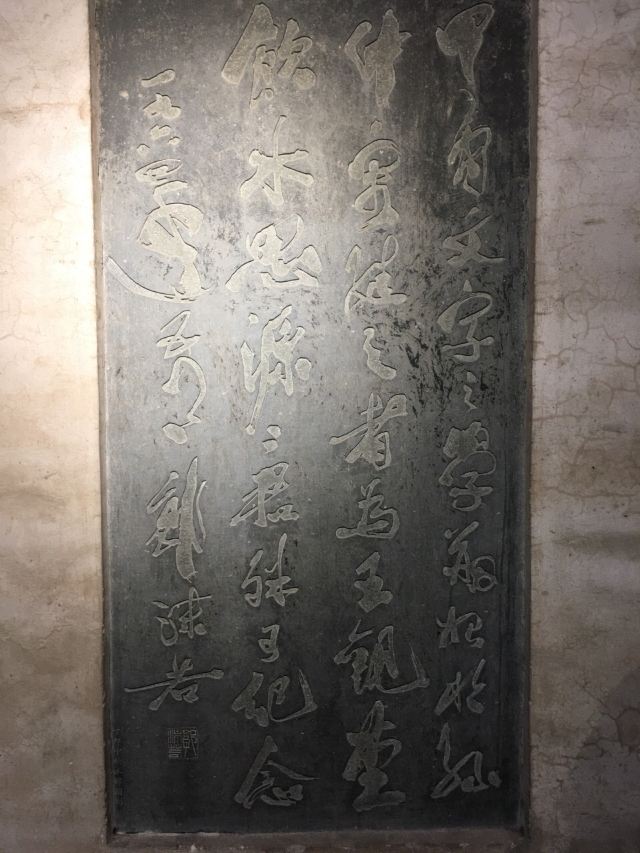 甲骨文字之學創始於孫
仲容繼之者為王觀堂
飲水思源二君殊可紀念
一九六四年五月郭沫若